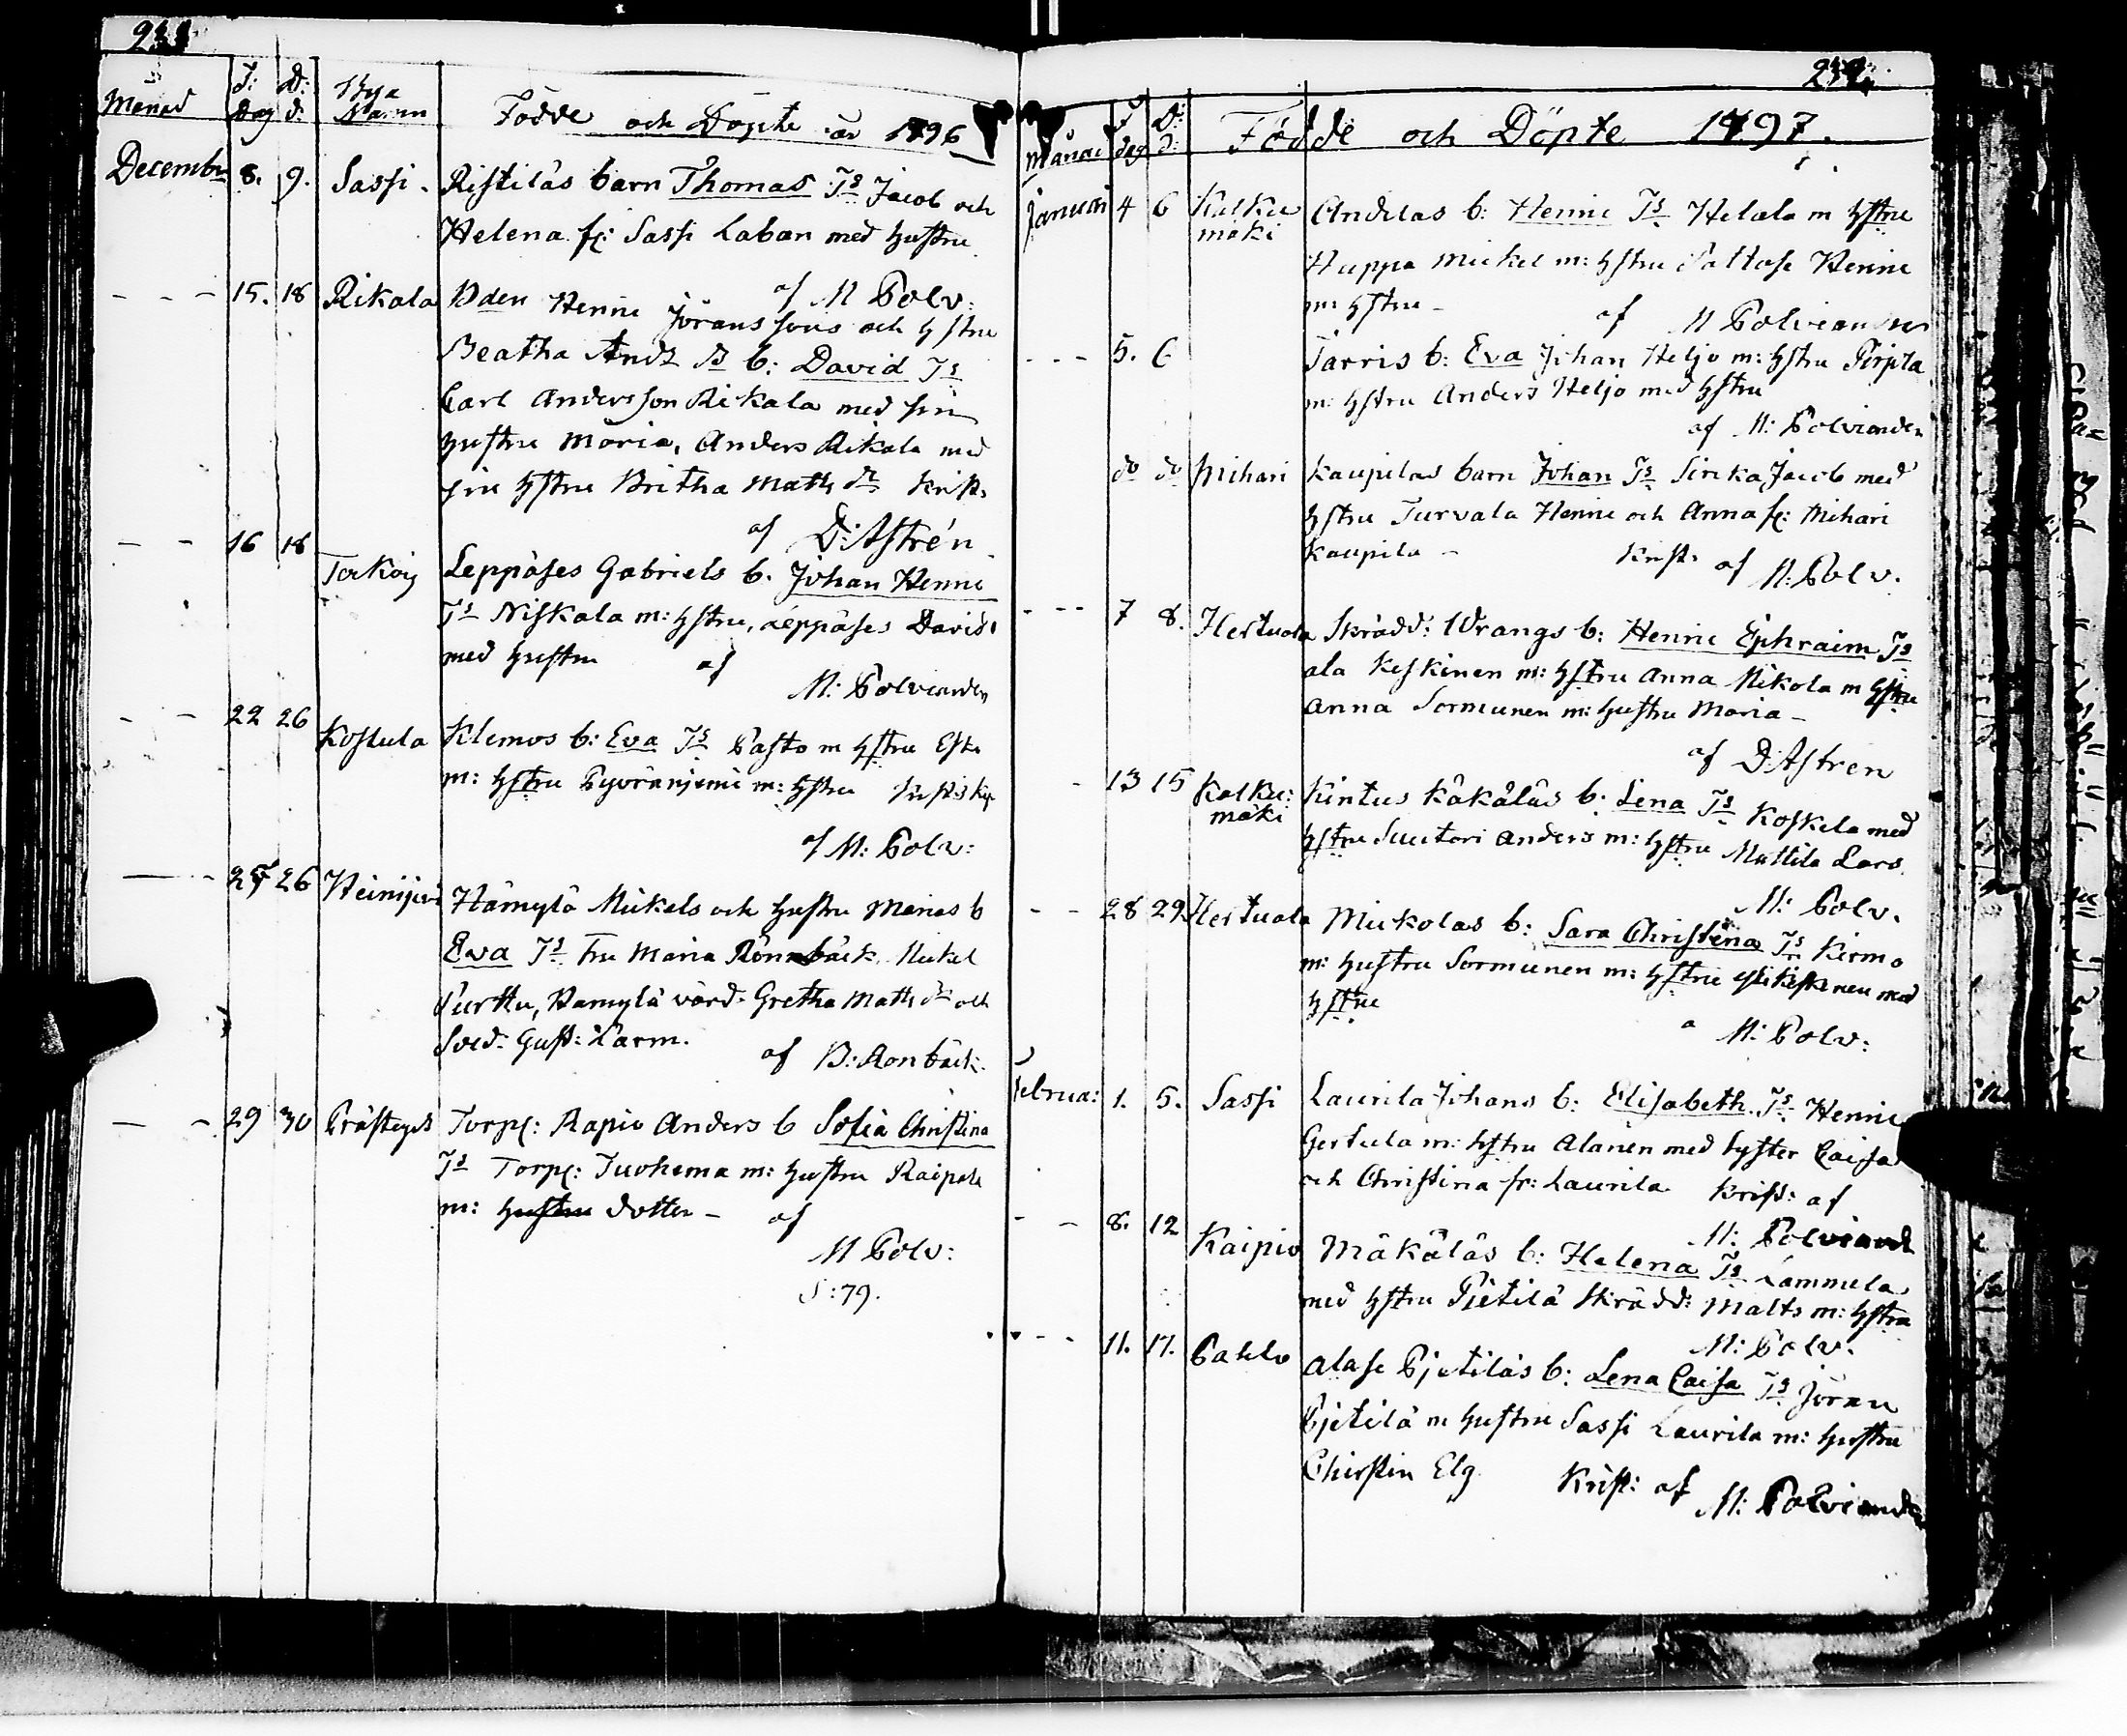 Månad F: dag D: d: Bya Namn Födde och Döpte år 1796
Decembr 8. 9. Sassi. Ristiläs barn Thomas Ts Jacob och
Helena fr: Sassi Laban med hustru
af M Polv:
15. 18 Rikala Bden Henric Jöranssons och hstru
Beatha Andz dr b: David Ts
Carl Andersson Rikala med sin
hustru Maria, Anders Rikala med
sin hstru Britha Maths dr krist.
af D: Astrén
16 18 Leppäses Gabriels b. Johan Henric
Ts Niskala m: hstru, Leppäses David
med hustru af
M: Polviander
22 26 Koskula Klemos b: Eva Ts Pasto m hstru
m: hstru Pyöränjemi m: hstru
af M: Polv:
26 Heinijoki Hämylä Mickels och hustru Marias b
Eva Ts Fru Maria Rönnbäck, Mickel
Purttu, Hamylä värd. Gretha Maths dr och
Sold. Gust: Larm.
af B: Rönbäck.
29 30 Prästegrd Torp: Rapio Anders b Sofia Christina
Ts Torp: Tuohema m: hustru Raipala
m: hustru dotter – af
M Polv:
S: 79.
Månad F dag D: d: Födde och Döpte 1797.
Januari 4 6 Kalku
mäki Andelas b: Henric Ts Helala m hstru
Huppa Mickel m: hstru Saltase Henric
m: hstru – af M Polviander
5. 6 Jarris b: Eva Johan Heljo m: hstru
m: hstru Anders Heljo med hstru
af M: Polviander
do do Mihari Kaupilas barn Johan Ts Sirika Jacob med
hstru Turvala Henric och Anna fr: Mihari
Kaupila – krist. af M: Polv.
7 8. Hertuala Skrädd: Wrangs b: Henric Ephraim Ts
ala Keskinen m: hstru Anna Nikola m hstru
Anna Sormunen m: hustru Maria –
af D: Astren
13 15 Kalku:
mäki Kintus Käkäläs b: Lena Ts Koskela med
hstru Suutari Anders m: hstru Mattila Lars
M: Polv.
28 29. Hertuala Mickolas b: Sara Christina Ts Kirmo
m: hustru Sormunen m: hstru Keskinen med
hstru
M: Polv:
Februa: 1. 5. Sassi Laurila Johans b: Elisabeth. Ts Henric
Gertula m: hstru Alanen med syster Caisa
och Christina fr: Laurila Krist: af
M: Polviand
8. 12 Kaipio Mäkäläs b: Helena Ts Lammula
med hstru Pjetilä Skrädd: Matts m: hstru
M: Polv.
11. 17. Pahlo Alase Pjetiläs b: Lena Caisa Ts Jöran
Pjetilä m hustru Sassi Laurila m: hustru
Christin Elg Krist: af
M: Polviander